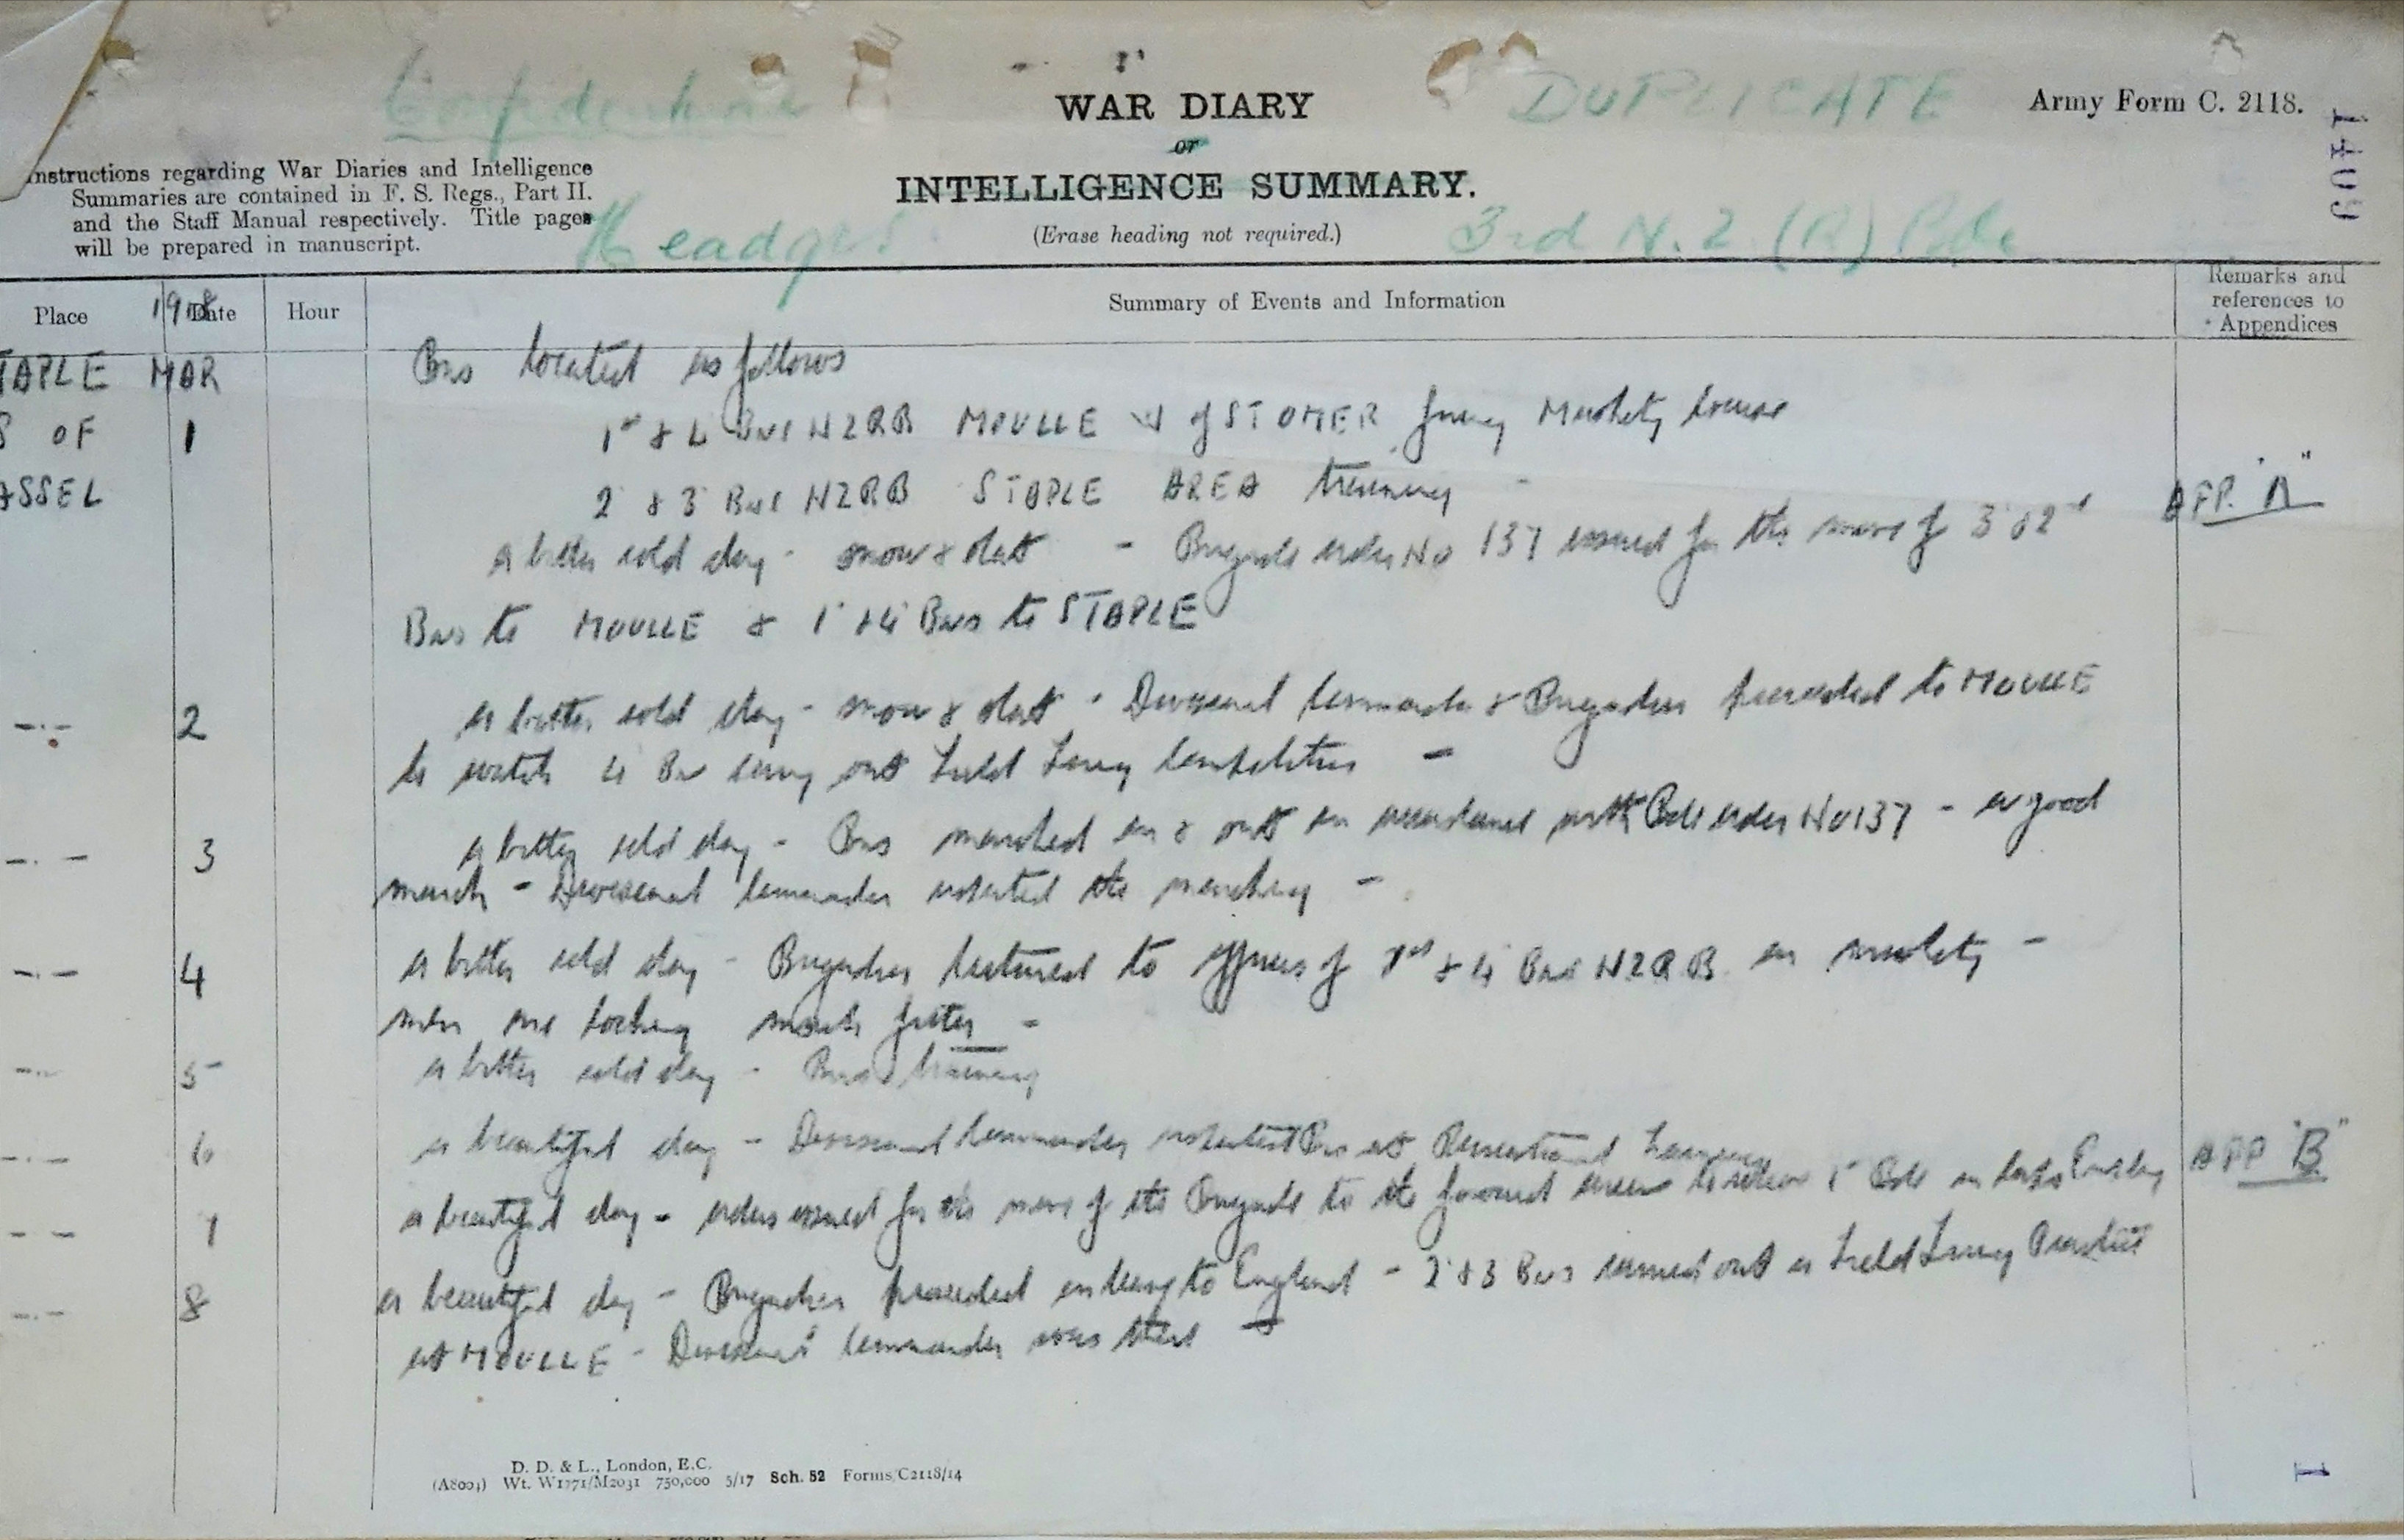 Confidential
WAR DIARY
DUPLICATE
Army Form C. 2118.
1409
or
Instructions regarding War Diaries and Intelligence
Summaries are contained in F. S. Regs., Part II.
and the Staff Manual respectively. Title pages
will be prepared in manuscript.
INTELLIGENCE SUMMARY.
(Erase heading not required.)
Headqrs
3rd N.Z (R) Bde
Place
1918
Date
Hour
Summary of Events and Information
Remarks and
references to
Appendices
TAPLE MAR Bns located as follows
S OF 1 1st & 4 Bns NZRB MOULLE W of ST OMER firing Musketry course
ASSEL 2 & 3 Bns NZRB STAPLE AREA training -
a bitter cold day - snow & sleet - Brigade order No 137 issued for the move of 3 & 2nd APP. "A"
Bns to MOULLE & 1 & 4 Bns to STAPLE
-.- 2 a bitter cold day - snow & sleet - Divisional Commander & Brigadier proceeded to MOULLE
to watch 4 Bn carry out Field Firing Competition -
-.- 3 a bitter cold day - Bns marched in & out in accordance with Bde order No 137 - a good
march - Divisional Commander inspected the marching -
-.- 4 a bitter cold day - Brigadier lectured to officers of 1st & 4 Bns NZRB on musketry -
men are looking much fitter -
-.- 5 a bitter cold day - Bns training
-.- 6 a beautiful day - Divisional Commander inspected Bns at Recreational Training
- - 7 a beautiful day - orders issued for the move of the Brigade to the forward area to relieve 1 Bde in APP "B"
-.- 8 a beautiful day - Brigadier proceeded on leave to England - 2 & 3 Bns carried out a Field Firing Practice
at MOULLE - Divisional Commander was there -
D. D. & L., London, E.C.
(A8004) Wt. W1771/M2031 750,000 5/17 Sch. 52 Forms/C2118/14
1